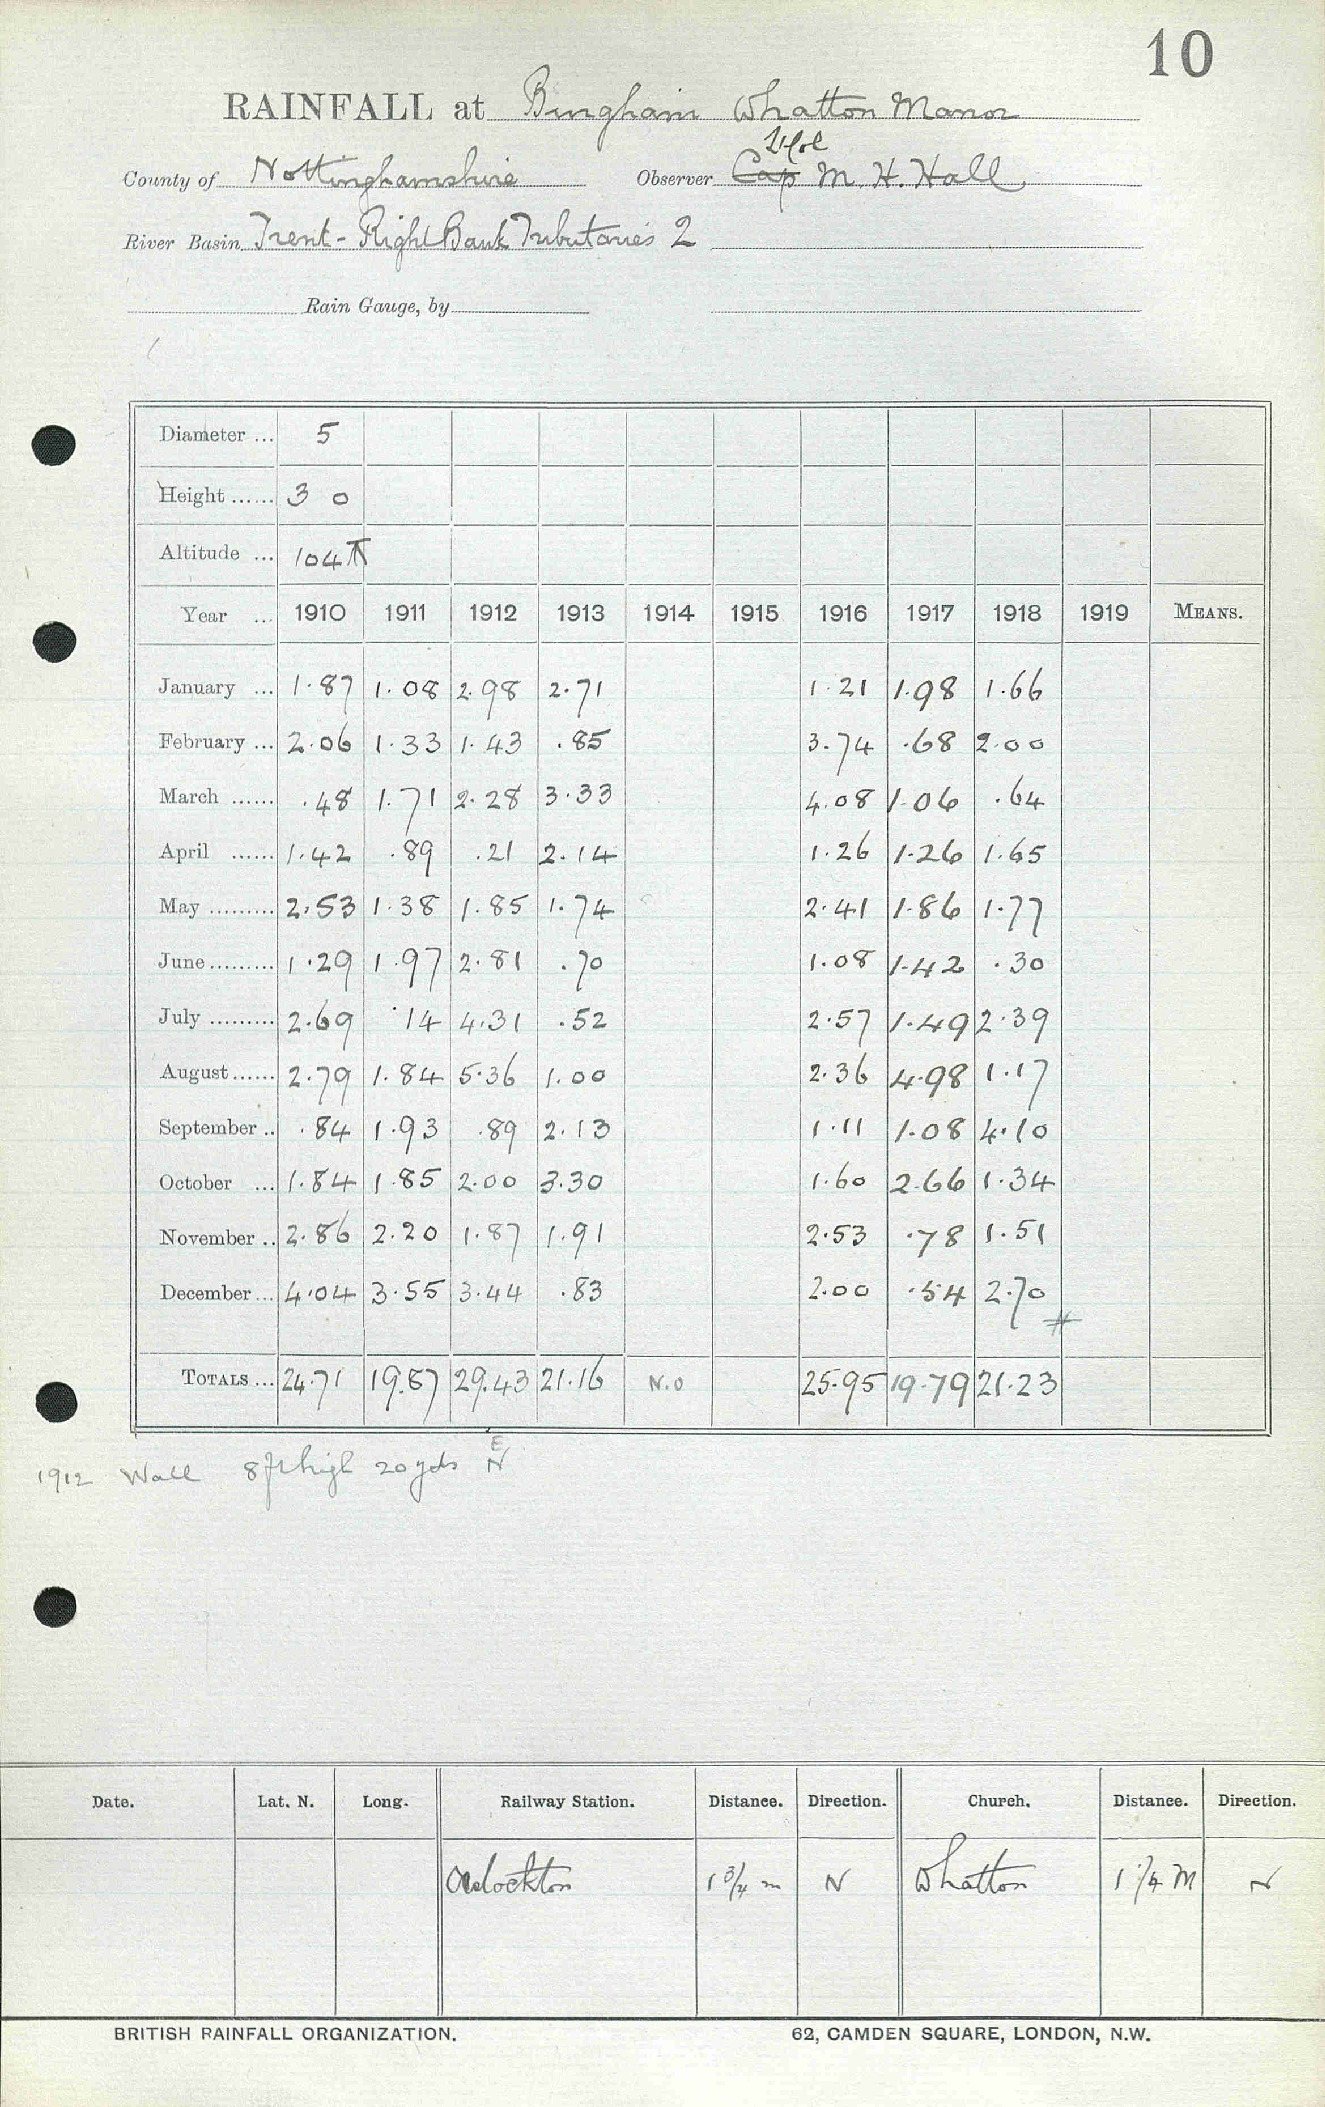 10
RAINFALL at Bingham Whatton Manor
County of Nottinghamshire Observer Cap M. H. Hall
River Basin Trent - Right Bank Tributaries 2
Rain Gauge, by
Diameter ... 5
Height ...... 3 0
Altitude ... 104 ft
Year ... 1910 1911 1912 1913 1914 1915 1916 1917 1918 1919 MEANS.
January ... 1.87 1.08 2.98 2.71 1.21 1.98 1.66
February ... 2.06 1.33 1.43 .85 3.74 .68 2.00
March ...... .48 1.71 2.28 3.33 4.08 1.06 .64
April ...... 1.42 .89 .21 2.14 1.26 1.26 1.65
May ......... 2.53 1.38 1.85 1.74 2.41 1.86 1.77
June ......... 1.29 1.97 2.81 .70 1.08 1.42 .30
July ......... 2.69 .14 4.31 .52 2.57 1.49 2.39
August ...... 2.79 1.84 5.36 1.00 2.36 4.98 1.17
September .. .84 1.93 .89 2.13 1.11 1.08 4.10
October ... 1.84 1.85 2.00 3.30 1.60 2.66 1.34
November .. 2.86 2.20 1.87 1.91 2.53 .78 1.51
December ... 4.04 3.55 3.44 .83 2.00 .54 2.70
#
TOTALS ... 24.71 19.87 29.43 21.16 N.O 25.95 19.79 21.23
1912 Wall 8ft high 20 yds N E
Date. Lat. N. Long. Railway Station. Distance. Direction. Church. Distance. Direction.
Aslockton 1 3/4 m N Whatton 1 1/4 M N
BRITISH RAINFALL ORGANIZATION. 62, CAMDEN SQUARE, LONDON, N.W.